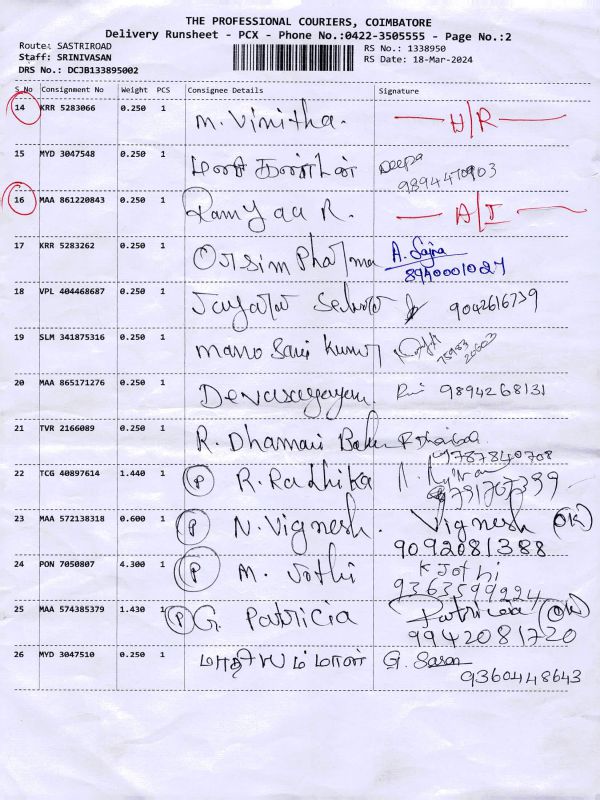 THE PROFESSIONAL COURIERS, COIMBATORE
Delivery Runsheet - PCX - Phone No.:0422-3505555 - Page No.:2
Route: SASTRIROAD
Staff: SRINIVASAN
DRS No.: DCJB133895002
RS No.: 1338950
RS Date: 18-Mar-2024
S.No Consignment No Weight PCS Consignee Details Signature
14 KRR 5283066 0.250 1 M. Vinitha. H/R
15 MYD 3047548 0.250 1 Deepa
9894470903
16 MAA 861220843 0.250 1 Ramyaa R. A/I
17 KRR 5283262 0.250 1 Orsim Pharma A. Sajna
8940001027
18 VPL 404468687 0.250 1 9042616739
19 SLM 341875316 0.250 1 Mano
75983
20603
20 MAA 865171276 0.250 1 Devasagayam. 9894268131
21 TVR 2166089 0.250 1 R. Dhamani
9787840708
22 TCG 40897614 1.440 1 P R. Radhika
23 MAA 572138318 0.600 1 P N. Vignesh. Vignesh OK
9092081388
24 PON 7050807 4.300 1 P M. Jothi K Jothi
9363599224
25 MAA 574385379 1.430 1 P G. Patricia Patricia OK
9942081720
26 MYD 3047510 0.250 1 G. Saran
9360448643